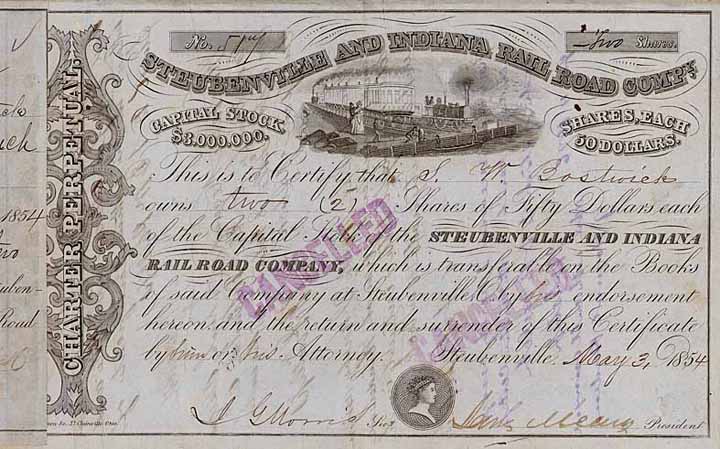 No. 517
Two Shares.
STEUBENVILLE AND INDIANA RAIL ROAD COMPY.
CAPITAL STOCK,
$3,000,000.
SHARES, EACH
50 DOLLARS.
CHARTER PERPETUAL.
This is to Certify that S. W. Bostwick
owns two (2) Shares of Fifty Dollars each
of the Capital Stock of the STEUBENVILLE AND INDIANA
RAIL ROAD COMPANY, which is transferable on the Books
of said Company at Steubenville, O. by his endorsement
hereon and the return and surrender of this Certificate
by him or his Attorney. Steubenville, May 3, 1854
CANCELLED
CANCELLED
J G Morris Sec
President
1854
Road